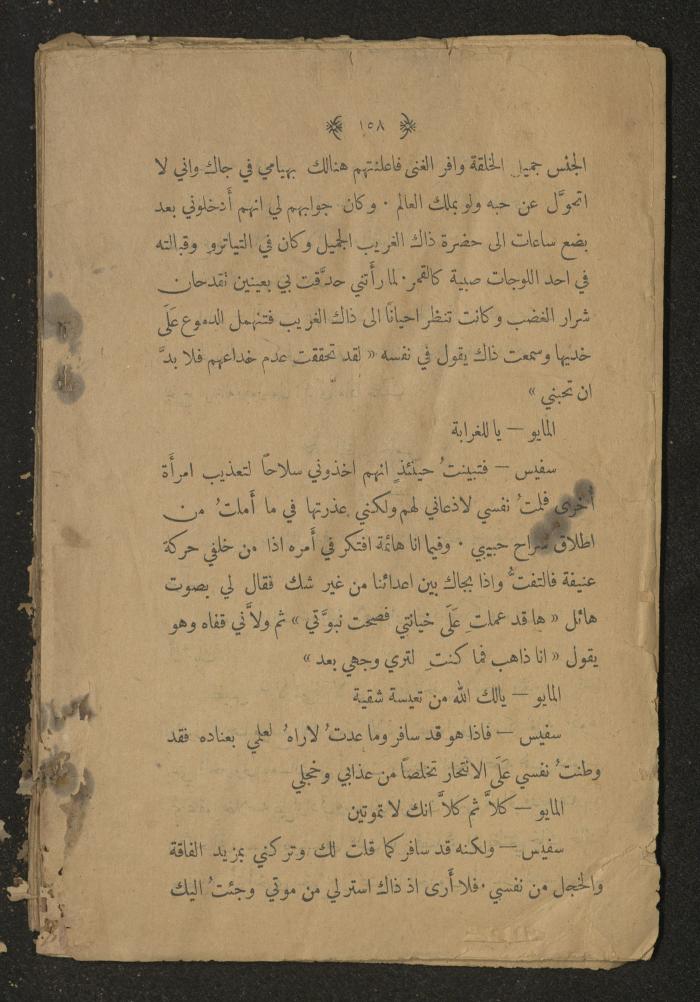 ١٥٨
الجنس جميل الخلقة وافر الغنى فاعلنتهم هنالك بهيامي في جاك واني لا
اتحوَّل عن حبه ولو بملك العالم . وكان جوابهم لي انهم أَدخلوني بعد
بضع ساعات الى حضرة ذاك الغريب الجميل وكان في التياترو وقبالته
في احد اللوجات صبية كالقمر. لما رأَتني حدَّقت بي بعينين تقدحان
شرار الغضب وكانت تنظر احيانًا الى ذاك الغريب فتنهمل الدموع عَلَى
خديها وسمعت ذاك يقول في نفسه « لقد تحققت عدم خداعهم فلا بدَّ
ان تحبني »
المايو — يا للغرابة
سفيس — فتبينتُ حينئذٍ انهم اخذوني سلاحًا لتعذيب امرأَة
أخرى فلمتُ نفسي لاذعاني لهم ولكني عذرتها في ما أَملتُ من
اطلاق سراح حبيبي . وفيما انا هائمة افتكر في أَمره اذا من خلفي حركة
عنيفة فالتفتُّ واذا بجاك بين اعدائنا من غير شك فقال لي بصوت
هائل « ها قد عملتِ عَلَى خيانتي فصحت نبوَّتي » ثم ولاَّني قفاه وهو
يقول « انا ذاهب فما كنتِ لتري وجهي بعد »
المايو — يالك الله من تعيسة شقية
سفيس — فاذا هو قد سافر وما عدتُ لاراهُ لعلمي بعناده فقد
وطنتُ نفسي عَلَى الانتحار تخلصًا من عذابي وخجلي
المايو — كلاَّ ثم كلاَّ انك لا تموتين
سفيس — ولكنه قد سافر كما قلت لك وتركني بمزيد الفاقة
والخجل من نفسي . فلا أَرى اذ ذاك استر لي من موتي وجئتُ اليك